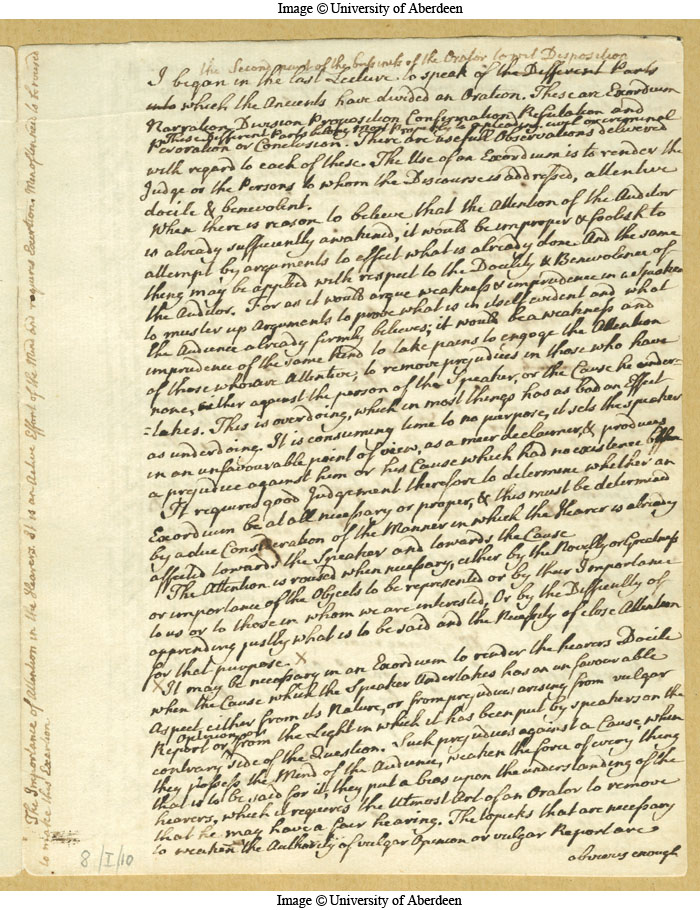 Image © University of Aberdeen
the Second part of the business of the Orator to wit Disposition
I began in the last Lecture to speak of the Different Parts
into which the Ancients have divided an Oration. These are Exordium
Narration Division Proposition Confirmation Refutation and
These Different Parts belong Most Properly to pleadings civil or criminal
Peroration or Conclusion. There are usefull Observations delivered
with regard to each of these. The Use of an Exordium is to render the
Judge or the Persons to whom the Discourse is addressed, attentive
docile & benevolent.
When there is reason to believe that the Attention of the Auditor
is already sufficiently awakened, it would be improper & foolish to
attempt by arguments to effect what is already done. And the same
thing may be applied with respect to the Docility & Benevolence of
the Auditor. For as it would argue weakness & imprudence in a Speaker
to muster up Arguments to prove what is in itself evident and what
the Audience already firmly believes; it would be a weakness and
imprudence of the same kind to take pains to engage the Attention
of those who are Attentive, to remove prejudices in those who have
none, either against the person of the Speaker, or the Cause he under-
=takes. This is overdoing, which in most things has as bad an Effect
as underdoing. It is consuming time to no purpose, it sets the speaker
in an unfavourable point of view, as a meer declaimer, & produces
a prejudice against him or his Cause which had no existence before
It requires good Judgement therefore to determine whether an
Exordium be at all necessary or proper, & this must be determined
by a due Consideration of the Manner in which the Hearer is already
affected towards the Speaker and towards the Cause
The Attention is roused when necessary, either by the Novelty or Greatness
or importance of the Objects to be represented or by their Importance
to us or to those in whom we are interested, Or by the Difficulty of
apprending justly what is to be said and the Necessity of close Attention
for that purpose. X
X It may be necessary in an Exordium to render the hearers Docile
when the Cause which the Speaker Undertakes has an unfavourable
Aspect either from its Nature, or from prejudices arising from vulgar
Opinion or
Report or from the Light in which it has been put by speakers on the
contrary side of the Question. Such prejudices against a Cause, when
they possess the Mind of the Audience, weaken the force of every thing
that is to be said for it, they put a bias upon the understanding of the
hearers, which it requires the Utmost Art of an Orator to remove
that he may have a fair hearing. The topicks that are necessary
to weaken the Authority of vulgar Opinion or vulgar Report are
obvious enough
The Importance of Attention in the Hearers. It is an Active Effort of the Mind and requires Exertion. Men often need to be roused
to make this Exertion
8/I/10
Image © University of Aberdeen